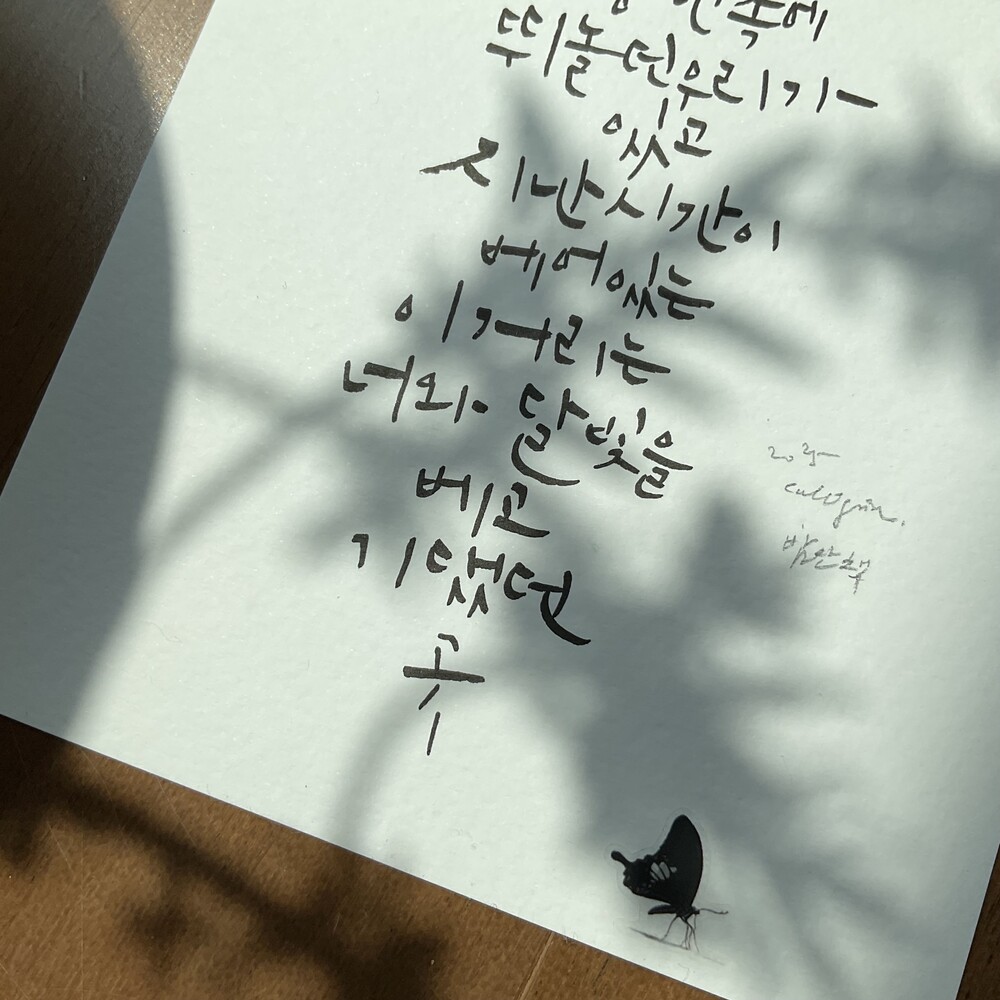 속에
뛰놀던우리가
있고
지난시간이
베어있는
이거리는
너와 달빛을
베고
기댔던
곳